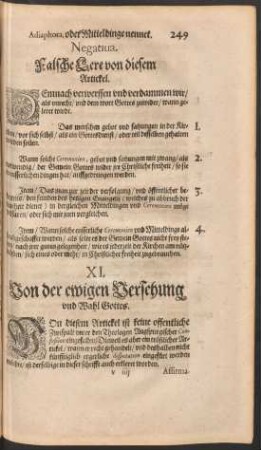 Adiaphora, oder Mitteldinge nennet. 249
Negatiua.
Falsche Lere von diesem
Artickel.
Demnach verwerffen und verdammen wir/
als unrecht/ und dem wort Gottes zuwider/ wann ge-
leret wirdt.
Das menschen gebot und satzungen in der Kir- 1.
chen/ vor sich selbst/ als ein Gottesdienst/ oder teil desselben gehalten
werden sollen.
Wann solche Ceremonien, gebot und satzungen mit zwang/ als 2.
notwendig/ der Gemein Gottes wider jre Christliche freiheit/ so sie
in eusserlichen dingen hat/ auffgedrungen werden.
Item/ Das man zur zeit der verfolgung/ und öffentlicher be- 3.
kentnis/ den feinden des heiligen Euangelij
in dergleichen Mitteldingen und Ceremonien möge
oder sich mit jnen vergleichen.
Item/ Wann solche eusserliche Ceremonien und Mitteldinge al- 4.
so abgeschaffet werden/ als solte es der Gemein Gottes nicht frey ste-
hen/
sich eines oder mehr/ in Christlicher freiheit zugebrauchen.
XI.
Von der ewigen Versehung
vnd Wahl Gottes.
Von diesem Artickel ist keine offentliche
Zwyspalt unter den Theologen Augspurgischer Con-
fession eingefallen/ Dieweil es aber ein tröstlicher Ar-
tickel/ wann er recht gehandelt/ und deshalben nicht
künfftiglich ergerliche disputation eingefüret werden
möchte/ ist derselbige in dieser schrifft auch erkleret worden.
Affirma-